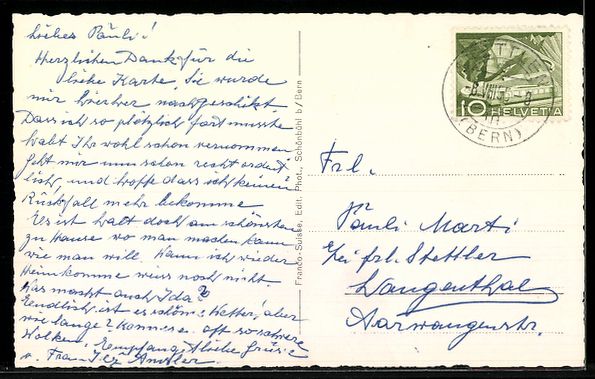 Liebes Päuli!
Herzlichen Dank für die
liebe Karte, Sie wurde
mir hierher nachgeschikt
Dass ich so plötzlich fort musste
habt Ihr wohl schon vernommen
Geht mir nun schon recht ordent
lich, und hoffe dass ich keinen
Rückfall mehr bekomme
Es ist halt doch am schönsten
zu Hause wo man machen kann
wie man will. Wann ich wieder
Heimkomme weiss noch nicht
Was macht auch Ida?
Eendlich ist es schön Wetter, aber
wie lange? kommen oft so schwere
Wolken. Empfang liebe Grüsse
v. Frau Amsler.
Franco-Suisse, Edit. Phot., Schönbühl b/Bern
10 HELVETIA
(BERN)
Frl.
Päuli Marti
bei frl. Stettler
Langenthal
Aarwangenstr.